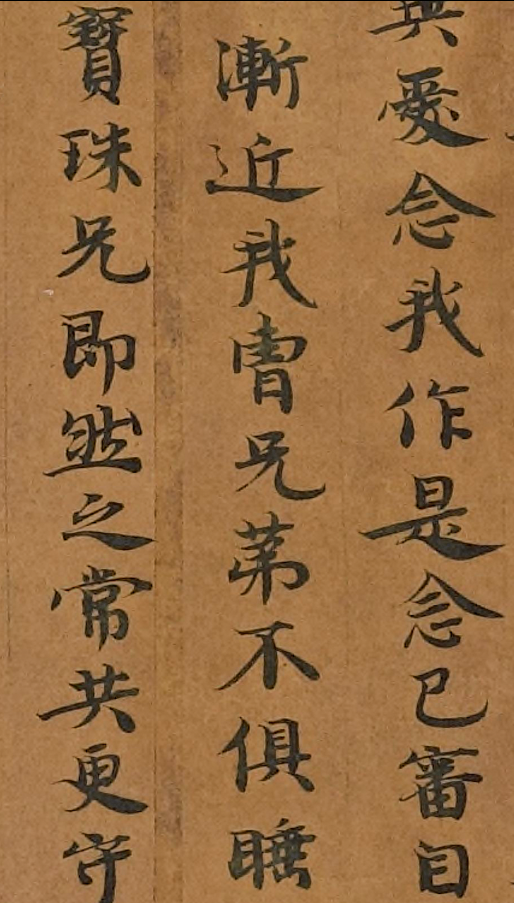 與愛念我作是念已審自
漸近我曹兄弟不俱睡
寶珠兄即然之常共更守